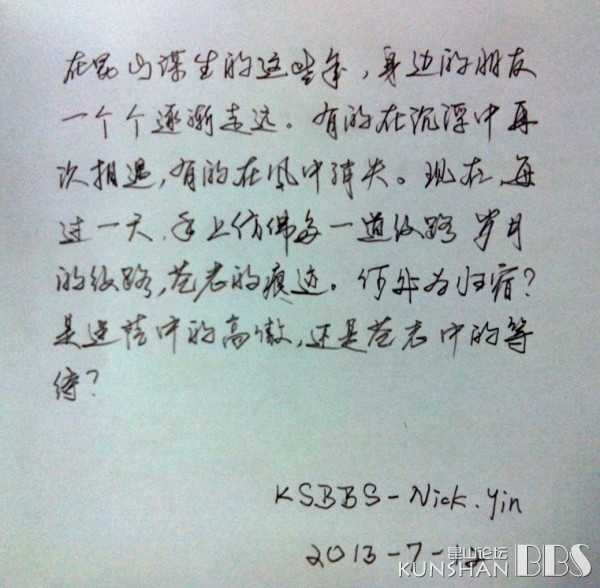 在昆山谋生的这些年，身边的朋友
一个个逐渐走远。有的在沉浮中再
次相遇，有的在风中消失。现在，每
过一天，手上仿佛多一道纹路 岁月
的纹路，苍老的痕迹。何处为归宿？
是迷惘中的高傲，还是苍老中的等
待？
KSBBS-Nick.Yin
2013-7-
昆山论坛
KUNSHAN BBS